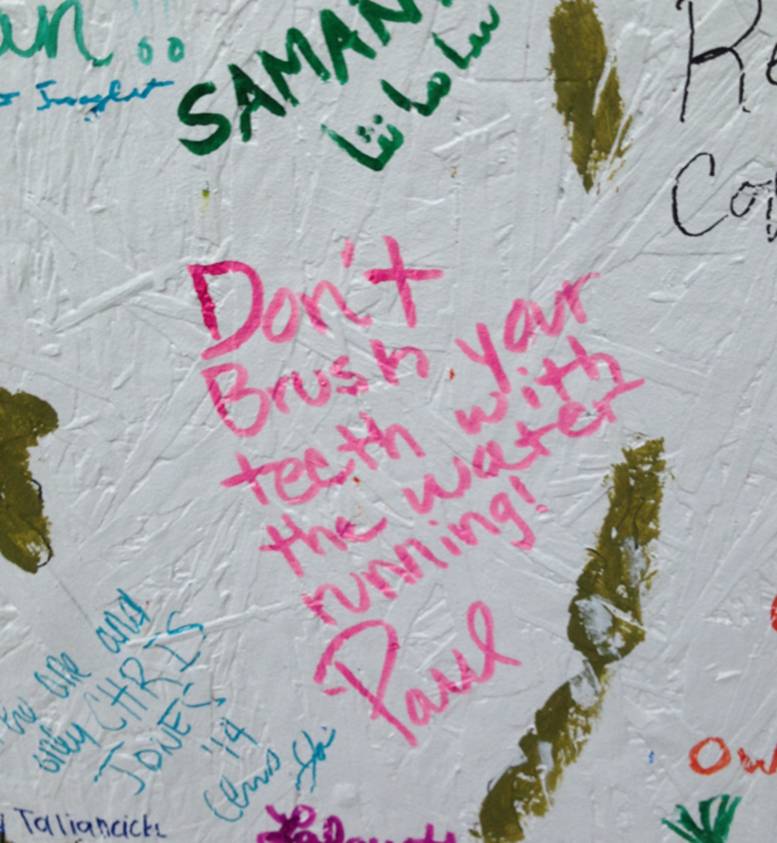 SAMAN
Don't
Brush your
teeth with
the water
running!
Paul
the one and
only CHRIS
JONES
'14
Chris
Taliancich
Ow